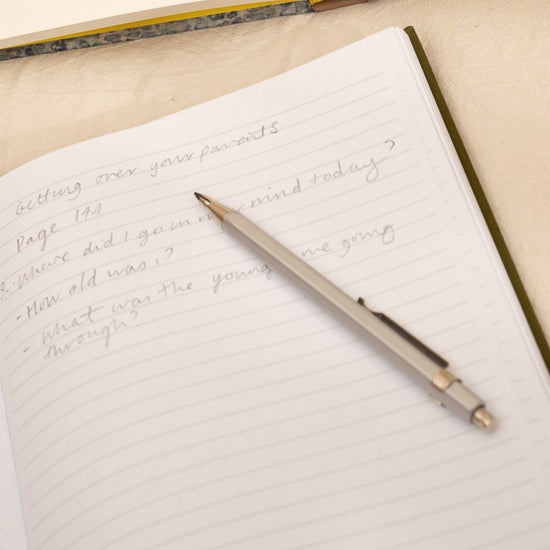 Getting over your parents
Page 144
Q. - Where did I go in my mind today?
- How old was i?
- What was the young me going
through?